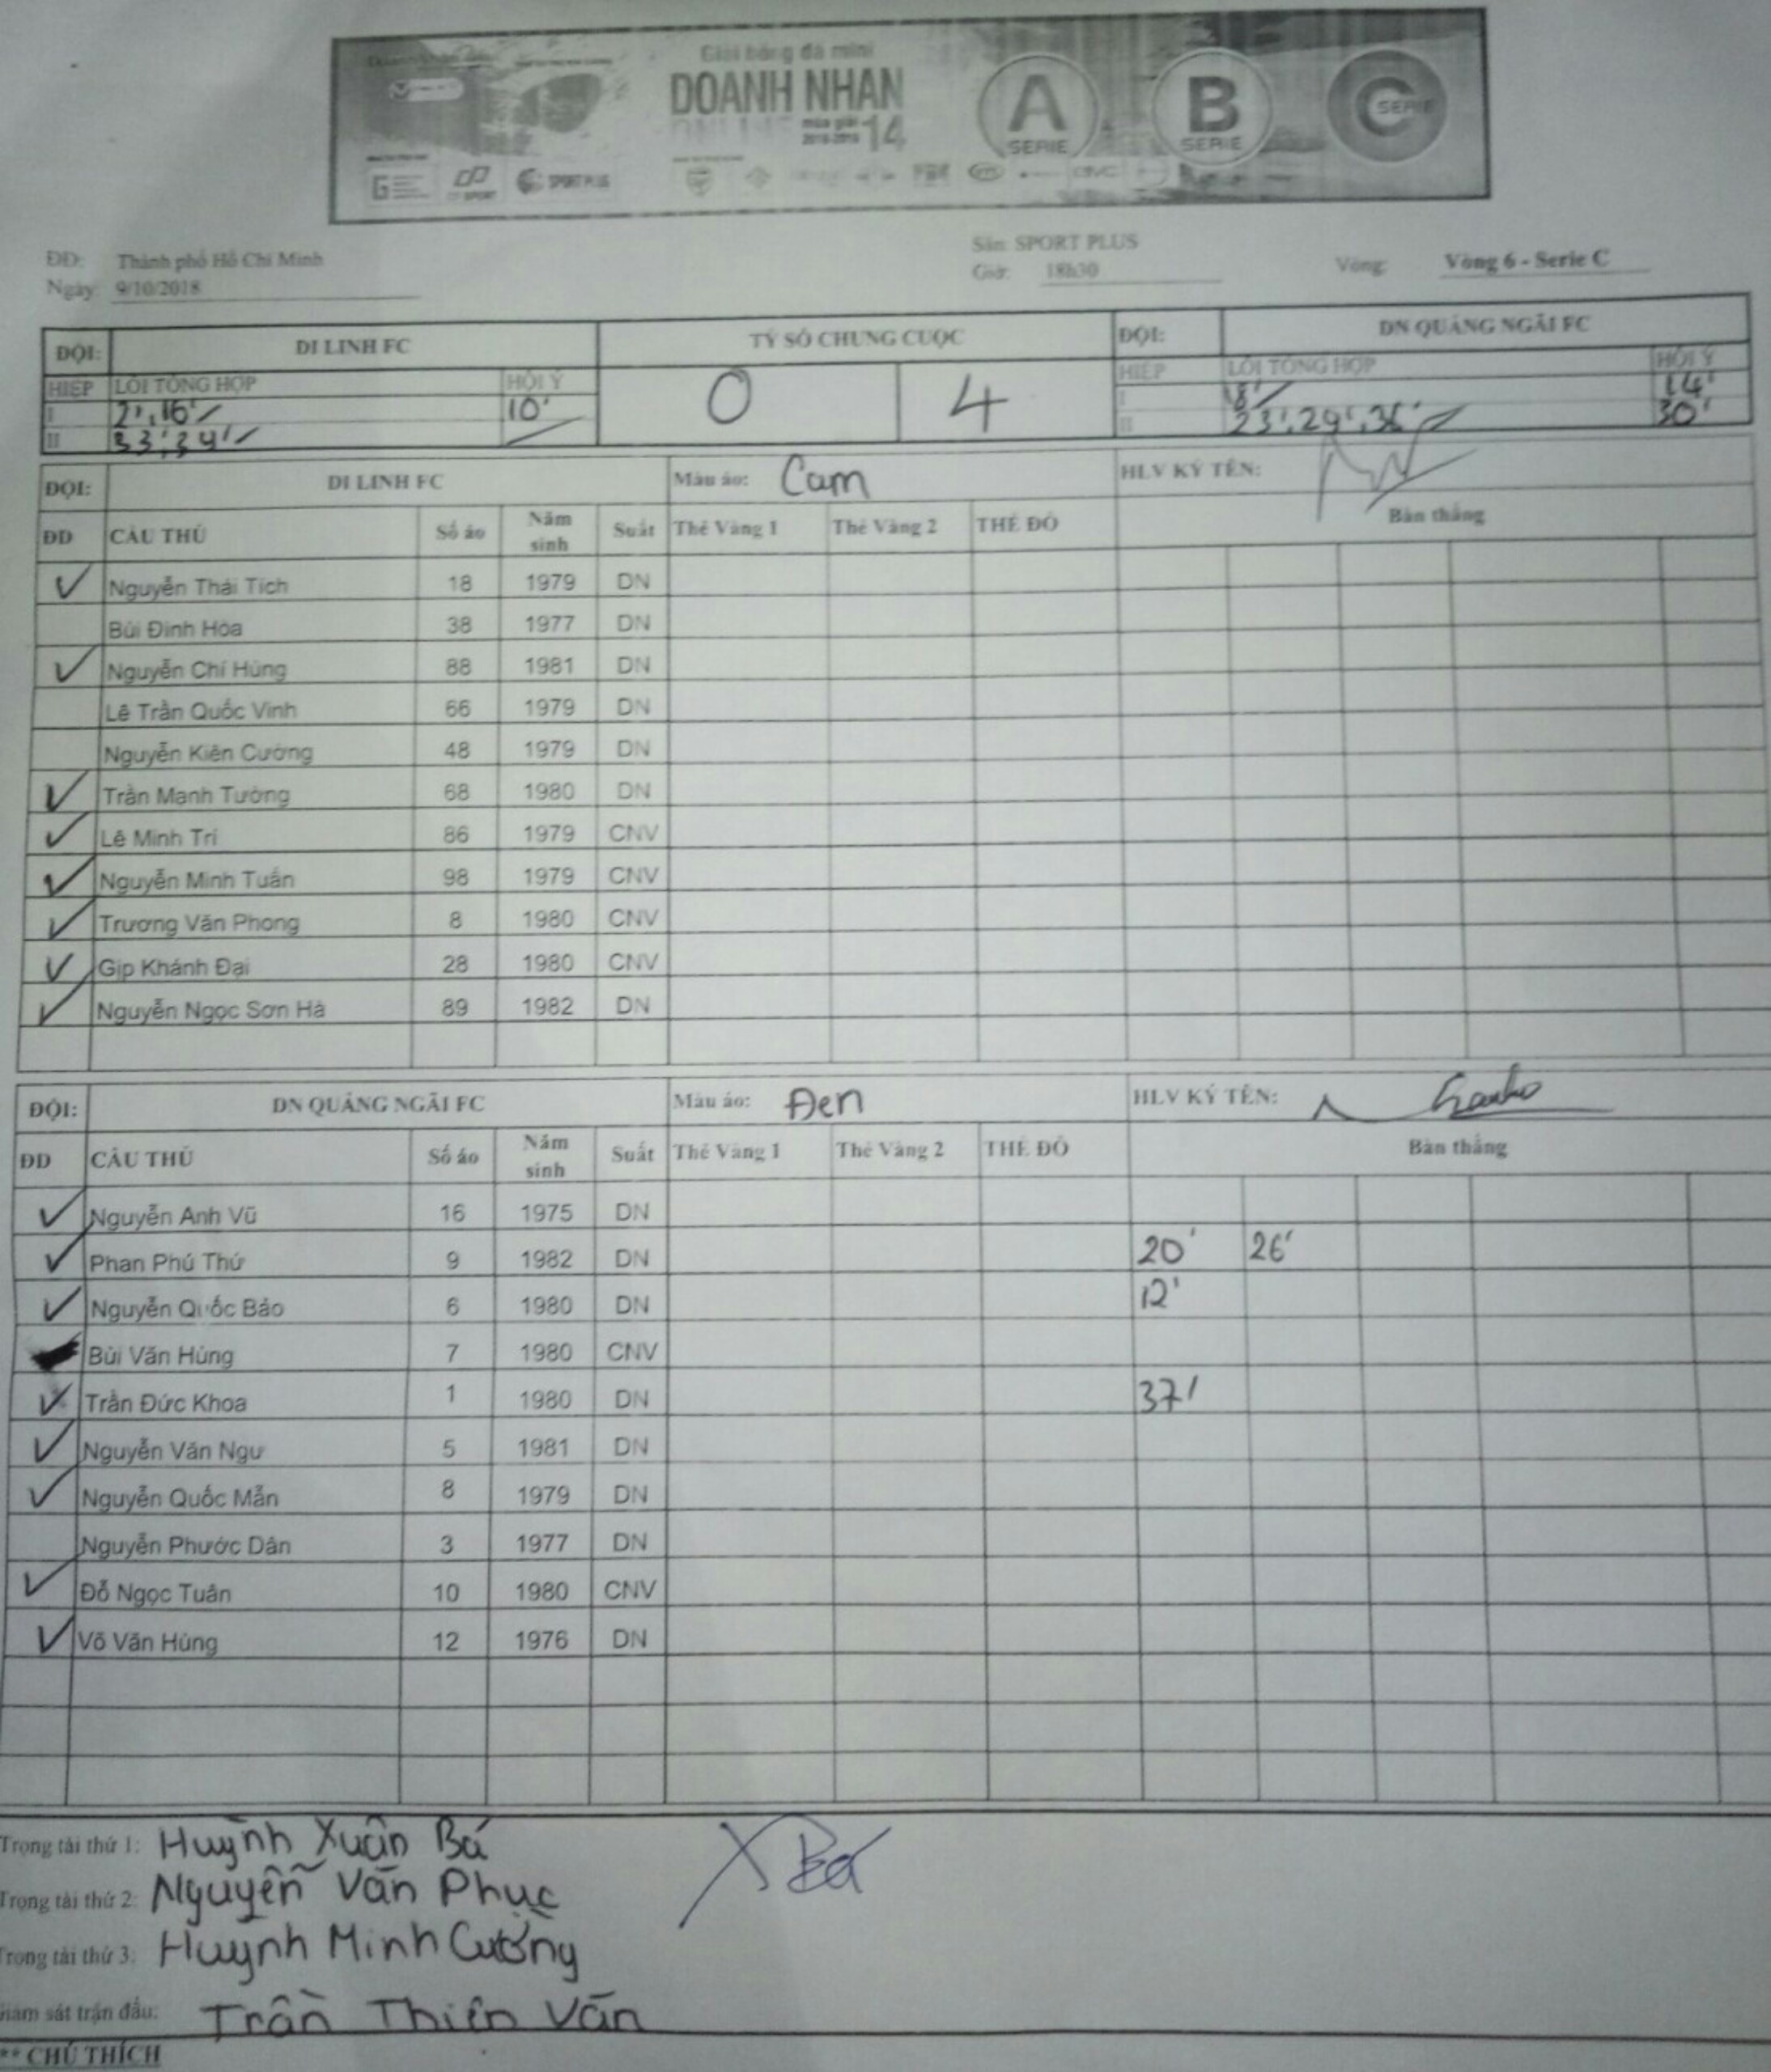 Giải bóng đá mini
DOANH NHAN
mùa giải 14
A SERIE B SERIE C SERIE
SPORT PLUS
ĐD: Thành phố Hồ Chí Minh Sân: SPORT PLUS
Ngày: 9/10/2018 Giờ: 18h30 Vòng: Vòng 6 - Serie C
ĐỘI: DI LINH FC TỶ SỐ CHUNG CUỘC ĐỘI: DN QUẢNG NGÃI FC
HIỆP LỖI TỔNG HỢP HỘI Ý 0 4 HIỆP LỖI TỔNG HỢP HỘI Ý
I 2', 16' 10' I 18' 14'
II 33', 34' II 23', 29', 36' 30'
ĐỘI: DI LINH FC Màu áo: Cam HLV KÝ TÊN:
ĐD CẦU THỦ Số áo Năm sinh Suất Thẻ Vàng 1 Thẻ Vàng 2 THẺ ĐỎ Bàn thắng
Nguyễn Thái Tích 18 1979 DN
Bùi Đình Hòa 38 1977 DN
Nguyễn Chí Hùng 88 1981 DN
Lê Trần Quốc Vinh 66 1979 DN
Nguyễn Kiên Cường 48 1979 DN
Trần Mạnh Tường 68 1980 DN
Lê Minh Trí 86 1979 CNV
Nguyễn Minh Tuấn 98 1979 CNV
Trương Văn Phong 8 1980 CNV
Gịp Khánh Đại 28 1980 CNV
Nguyễn Ngọc Sơn Hà 89 1982 DN
ĐỘI: DN QUẢNG NGÃI FC Màu áo: Đen HLV KÝ TÊN:
ĐD CẦU THỦ Số áo Năm sinh Suất Thẻ Vàng 1 Thẻ Vàng 2 THẺ ĐỎ Bàn thắng
Nguyễn Anh Vũ 16 1975 DN
Phan Phú Thứ 9 1982 DN 20' 26'
Nguyễn Quốc Bảo 6 1980 DN 12'
Bùi Văn Hùng 7 1980 CNV
Trần Đức Khoa 1 1980 DN 37'
Nguyễn Văn Ngư 5 1981 DN
Nguyễn Quốc Mẫn 8 1979 DN
Nguyễn Phước Dân 3 1977 DN
Đỗ Ngọc Tuân 10 1980 CNV
Võ Văn Hùng 12 1976 DN
Trọng tài thứ 1: Huỳnh Xuân Bá XBá
Trọng tài thứ 2: Nguyễn Văn Phục
Trọng tài thứ 3: Huỳnh Minh Cường
Giám sát trận đấu: Trần Thiên Vấn
** CHÚ THÍCH